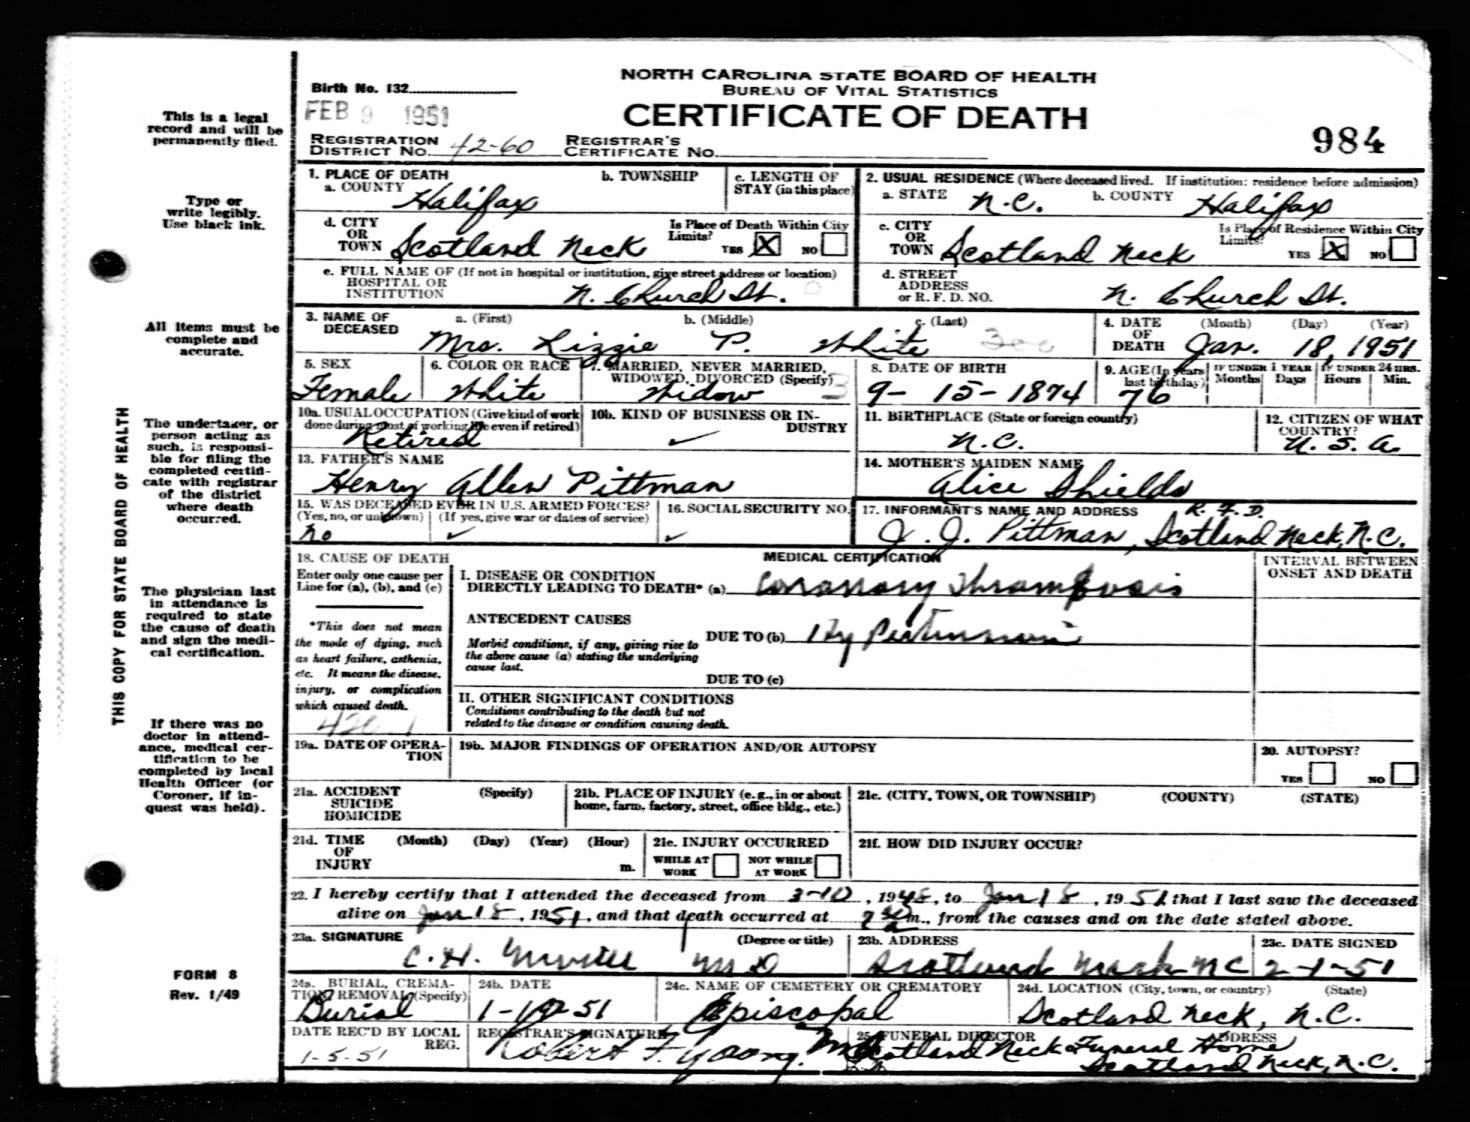 NORTH CAROLINA STATE BOARD OF HEALTH
BUREAU OF VITAL STATISTICS
CERTIFICATE OF DEATH
Birth No. 132
FEB 9 1951
984
REGISTRATION DISTRICT No. 42-60 REGISTRAR'S CERTIFICATE No.
This is a legal record and will be permanently filed.
Type or write legibly. Use black ink.
All items must be complete and accurate.
The undertaker, or person acting as such, is responsible for filing the completed certificate with registrar of the district where death occurred.
The physician last in attendance is required to state the cause of death and sign the medical certification.
If there was no doctor in attendance, medical certification to be completed by local Health Officer (or Coroner, if inquest was held).
FORM 8
Rev. 1/49
THIS COPY FOR STATE BOARD OF HEALTH
1. PLACE OF DEATH
a. COUNTY Halifax
b. TOWNSHIP
c. LENGTH OF STAY (in this place)
2. USUAL RESIDENCE (Where deceased lived. If institution: residence before admission)
a. STATE N.C. b. COUNTY Halifax
d. CITY OR TOWN Scotland Neck
Is Place of Death Within City Limits? YES X NO
c. CITY OR TOWN Scotland Neck
Is Place of Residence Within City Limits? YES X NO
e. FULL NAME OF (If not in hospital or institution, give street address or location) HOSPITAL OR INSTITUTION N. Church St.
d. STREET ADDRESS or R. F. D. NO. N. Church St.
3. NAME OF DECEASED a. (First) b. (Middle) c. (Last)
Mrs. Lizzie P. White
4. DATE OF DEATH (Month) (Day) (Year)
Jan. 18, 1951
5. SEX Female
6. COLOR OR RACE White
7. MARRIED, NEVER MARRIED, WIDOWED, DIVORCED (Specify) Widow 3
8. DATE OF BIRTH 9-15-1874
9. AGE (In years last birthday) 76
IF UNDER 1 YEAR Months Days
IF UNDER 24 HRS. Hours Min.
10a. USUAL OCCUPATION (Give kind of work done during most of working life even if retired) Retired
10b. KIND OF BUSINESS OR INDUSTRY ✓
11. BIRTHPLACE (State or foreign country) N.C.
12. CITIZEN OF WHAT COUNTRY? U.S.A.
13. FATHER'S NAME Henry Allen Pittman
14. MOTHER'S MAIDEN NAME Alice Shields
15. WAS DECEASED EVER IN U.S. ARMED FORCES? (Yes, no, or unknown) (If yes, give war or dates of service)
No ✓
16. SOCIAL SECURITY NO. ✓
17. INFORMANT'S NAME AND ADDRESS R.F.D.
J. J. Pittman, Scotland Neck, N.C.
18. CAUSE OF DEATH
Enter only one cause per Line for (a), (b), and (c)
*This does not mean the mode of dying, such as heart failure, asthenia, etc. It means the disease, injury, or complication which caused death.
MEDICAL CERTIFICATION
INTERVAL BETWEEN ONSET AND DEATH
I. DISEASE OR CONDITION DIRECTLY LEADING TO DEATH* (a) Coronary Thrombosis
ANTECEDENT CAUSES
Morbid conditions, if any, giving rise to the above cause (a) stating the underlying cause last.
DUE TO (b) Hypertension
DUE TO (c)
II. OTHER SIGNIFICANT CONDITIONS
Conditions contributing to the death but not related to the disease or condition causing death.
420.1
19a. DATE OF OPERATION
19b. MAJOR FINDINGS OF OPERATION AND/OR AUTOPSY
20. AUTOPSY? YES NO
21a. ACCIDENT SUICIDE HOMICIDE (Specify)
21b. PLACE OF INJURY (e. g., in or about home, farm, factory, street, office bldg., etc.)
21c. (CITY, TOWN, OR TOWNSHIP) (COUNTY) (STATE)
21d. TIME OF INJURY (Month) (Day) (Year) (Hour) m.
21e. INJURY OCCURRED WHILE AT WORK NOT WHILE AT WORK
21f. HOW DID INJURY OCCUR?
22. I hereby certify that I attended the deceased from 3-10, 1948, to Jan 18, 1951, that I last saw the deceased
alive on Jan 18, 1951, and that death occurred at m., from the causes and on the date stated above.
23a. SIGNATURE (Degree or title)
C. H. MD
23b. ADDRESS Scotland Neck NC
23c. DATE SIGNED 2-1-51
24a. BURIAL, CREMATION, REMOVAL (Specify) Burial
24b. DATE 1-19-51
24c. NAME OF CEMETERY OR CREMATORY Episcopal
24d. LOCATION (City, town, or county) (State)
Scotland Neck, N.C.
DATE REC'D BY LOCAL REG. 1-5-51
REGISTRAR'S SIGNATURE Robert F. Young.
25. FUNERAL DIRECTOR ADDRESS
Scotland Neck Funeral Home
Scotland Neck, N.C.